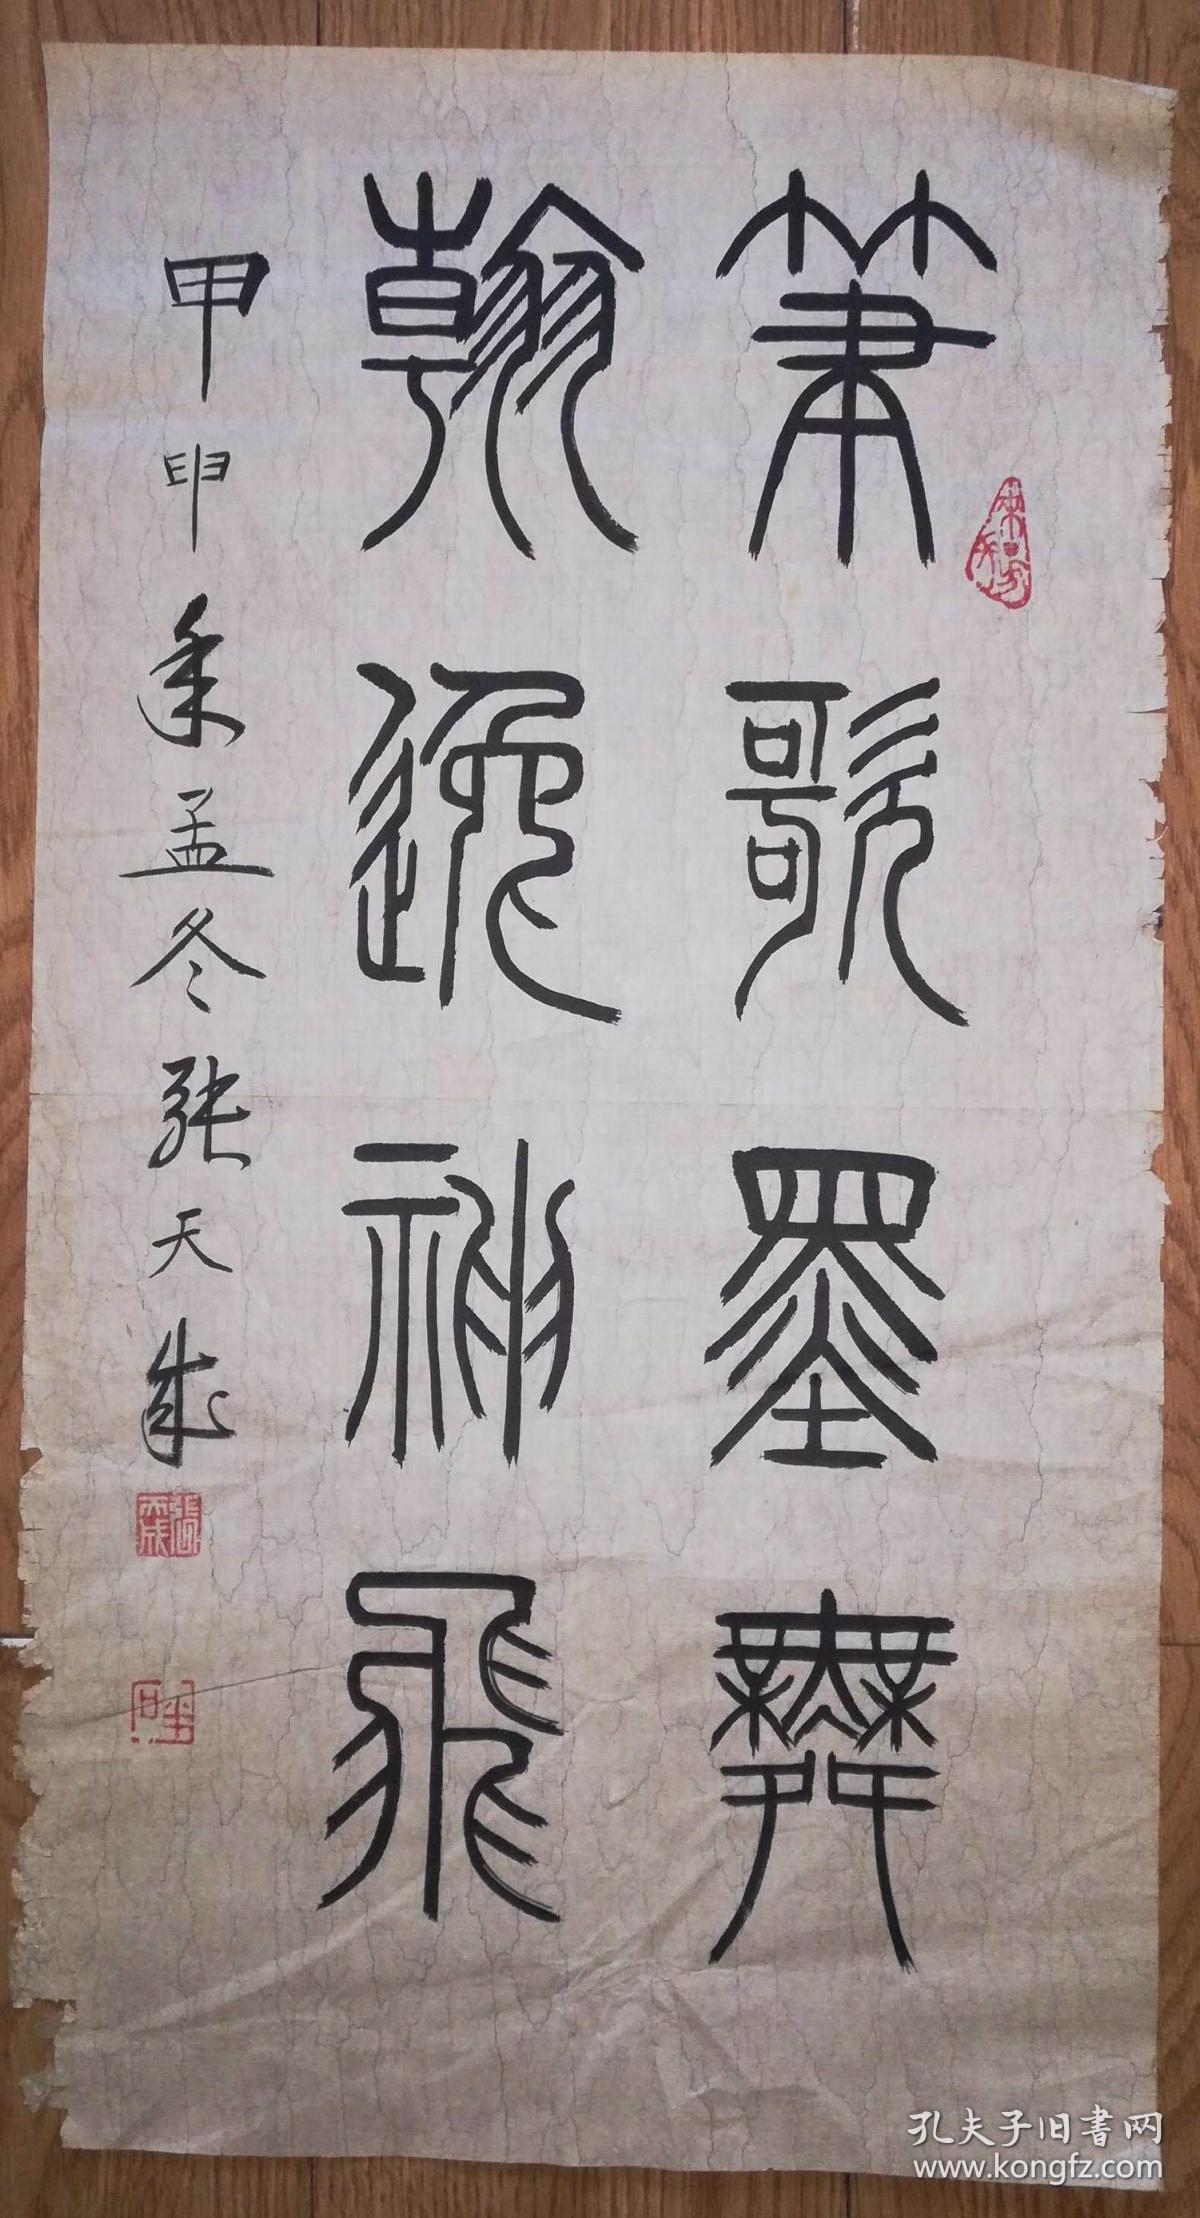 筆歌墨舞
翰逸神飛
甲申年孟冬張天成
孔夫子旧書网
www.kongfz.com